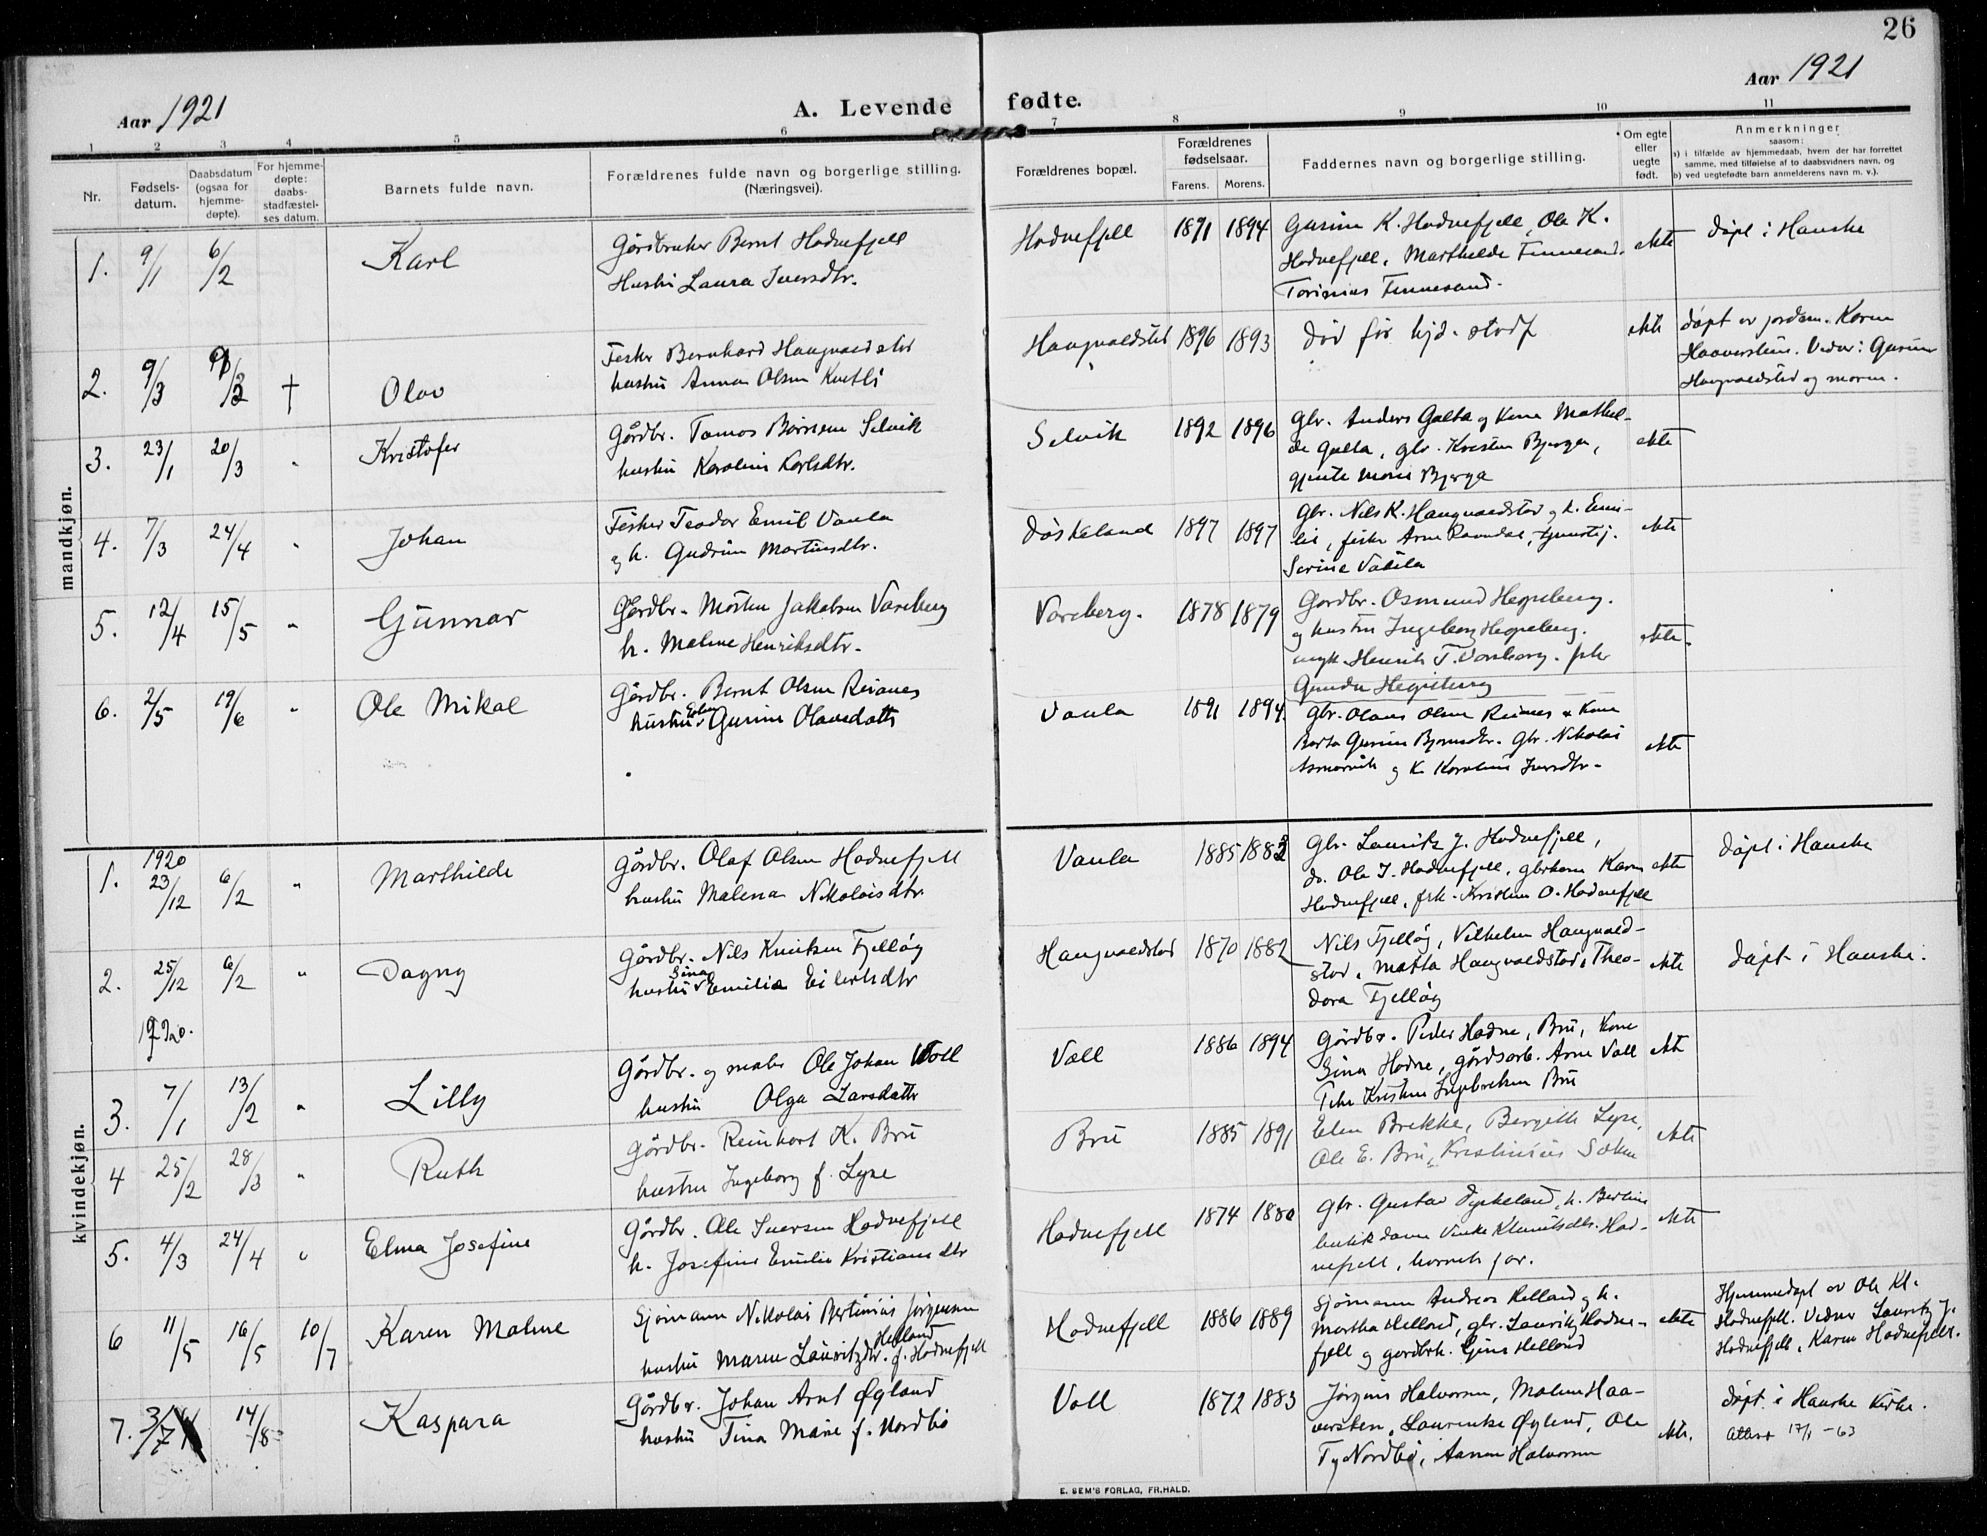 26
Aar 1921
A. Levende fødte.
Aar 1921
1 2 3 4 5 6 7 8 9 10 11
Nr.
Fødsels-
datum.
Daabsdatum
(ogsaa for
hjemme-
døpte).
For hjemme-
døpte:
daabs-
stadfæstel-
ses datum.
Barnets fulde navn.
Forældrenes fulde navn og borgerlige stilling.
(Næringsvei).
Forældrenes bopæl.
Forældrenes
fødselsaar.
Farens. Morens.
Faddernes navn og borgerlige stilling.
Om egte
eller
uegte
født.
Anmerkninger
saasom:
a) i tilfælde av hjemmedaab, hvem der har forrettet
samme, med tilføielse af to daabsvidners navn, og
b) ved uegtefødte barn anmelderens navn m. v.).
mandkjøn.
1. 9/1 6/2 Karl
Gårdbruker Bernt Hodnefjell
Hustru Laura Iversdtr.
Hodnefjell 1891 1894
Gurine K. Hodnefjell, Ole K.
Hodnefjell, Marthilde Finnesand.
Torinius Finnesand.
ekte
døpt i Hauske
2. 9/3 † Olav
Fisker Bernhard Haugvaldstad
hustru Anna Olsen
Haugvaldstad 1896 1893
død før hjd. stadf
ekte
døpt av jordm. Karen
Haaverstein. Vidner: Gurine
Haugvaldstad og moren.
3. 23/1 20/3 " Kristofer
Gårdbr. Tomas Selvik
hustru Karoline Karlsdtr.
Selvik 1892 1896
Gbr. Anders Galta og kone Mathil-
de Galta, gbr. Kristen Bjerga,
gjente Marie Bjerga
ekte
4. 7/3 24/4 " Johan
Fisker Teodor Emil Vaula
og h. Gudrun Martinsdtr.
Døskeland 1897 1897
Gbr. Nils K. Haugvaldstad og h. Emi-
lie, fisker Arne
Serine Vaula
ekte
5. 12/4 15/5 " Gunnar
Gårdbr. Morten Jakobsen Vareberg
h. Malene Henriksdtr.
Vareberg. 1878 1879
Gardbr. Osmund Hegreberg.
og hustru Ingeborg Hegreberg.
ungk. Henrik T. Vareberg. frk
Gunda Hegreberg
ekte.
6. 2/5 19/6 " Ole Mikal
Gårdbr. Bernt Olsen Reianes
hustru Gurine Olausdatter
Vaula 1891 1894
Gbr. Olaus Olsen Reianes & kone
Berta Gurine Bjornsdtr. Gbr. Nikolai
Asmarvik og k. Karoline Iversdtr.
ekte
kvindekjøn.
1. 1920 23/12 6/2 " Marthilde
Gårdbr. Olaf Olsen Hodnefjell
hustru Malena Nikolaisdtr.
Vaula 1885 1883
Gbr. Lauritz J. Hodnefjell,
do. Ole J. Hodnefjell, gbrkone Karen
Hodnefjell, frk. Kristine O. Hodnefjell
ekte
døpt i Hauske
2. 25/12 1920. 6/2 " Dagny
Gårdbr. Nils Knutsen Fjelløy
hustru Sina Emilie Eilertsdtr
Haugvaldstad 1870 1882
Nils Fjelløy, Vilhelm Haugvald-
stad, Matta Haugvaldstad, Theo-
dora Fjelløy
ekte
døpt i Hauske.
3. 7/1 13/2 " Lilly
Gårdbr. og maler Ole Johan Voll
hustru Olga Larsdatter
Voll 1886 1894
Gårdbr. Peder Hodne, Bru, kone
Sina Hodne, gårdsarb. Arne Voll
Pike Kristine Ingebretsen Bru
ekte
4 25/2 28/3 " Ruth
Gårdbr. Reinhart K. Bru
hustru Ingeborg f. Lyse
Bru 1885 1891
Elen Brekke, Bergitte Lyse,
Ole E. Bru, Kristinius
ekte
5. 4/3 24/4 " Elma Josefine
Gårdbr. Ole Iversen Hodnefjell
h. Josefine Emilie Kristiansdtr
Hodnefjell 1874 1880
Gbr. Gustav Dyskeland, h. Bertine
butikdame Vivike Klausdtr. Hod-
nefjell, barnets far.
ekte
6 11/5 16/5 10/7 Karen Malene
Sjømann Nikolai Bertinius Jørgensen
Helland
hustru Maren Lauritzdtr. f. Hodnefjell
Hodnefjell 1886 1889
Sjømann Andreas Helland og h.
Martha Helland, gbr. Lauritz Hodne-
fjell og gardbrk. Gina Helland
ekte
Hjemmedøpt av Ole Kl.
Hodnefjell. Vidner Lauritz J.
Hodnefjell, Karen Hodnefjell.
7. 3/7 14/8 Kaspara
Gårdbr. Johan Arnt Øgland
hustru Tina Marie f. Nordbø
Voll 1872 1883
Jørgine Halvorsen, Malene Haa-
verstein, Laurentse Øgland, Ole
Ty Nordbø, Aanen Halvorsen
ekte.
døpt i Hauske kirke.
Attest 17/1 -63
E. SEM'S FORLAG, FR.HALD.